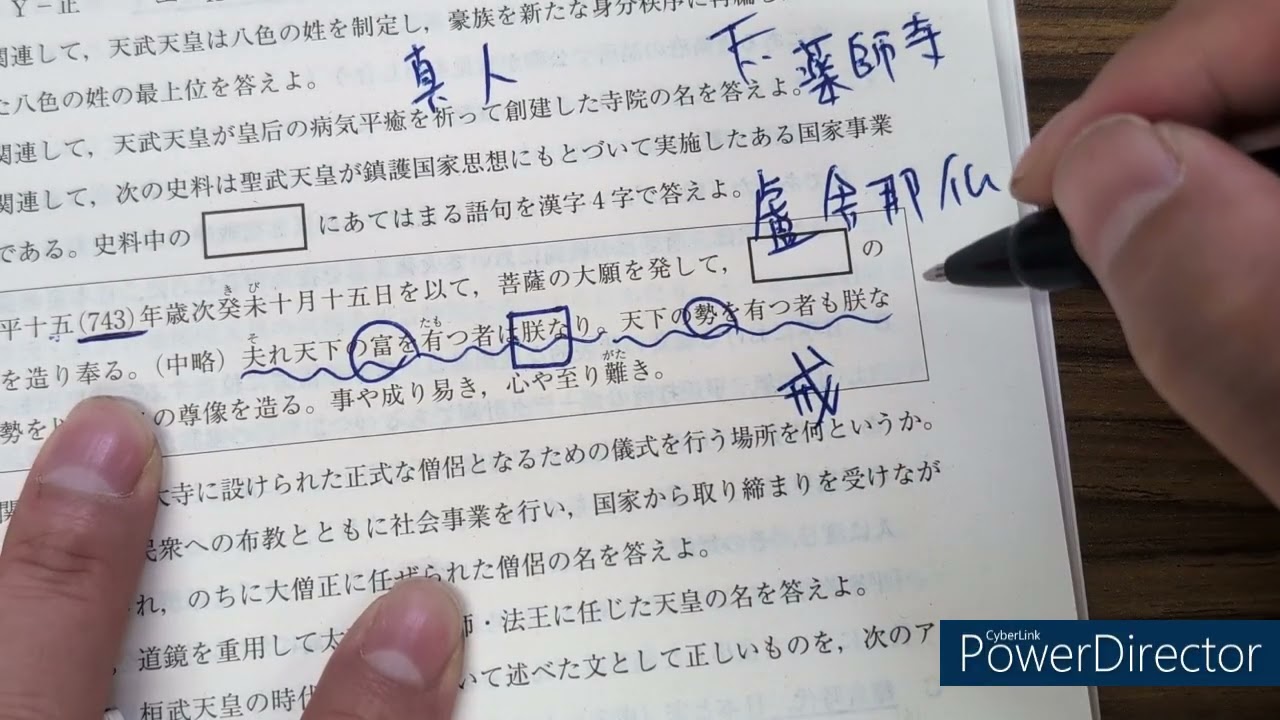 Y－正
関連して，天武天皇は八色の姓を制定し，豪族を新たな身分秩序に再編し
た八色の姓の最上位を答えよ。
真人
下 薬師寺
関連して，天武天皇が皇后の病気平癒を祈って創建した寺院の名を答えよ。
関連して，次の史料は聖武天皇が鎮護国家思想にもとづいて実施したある国家事業
である。史料中の にあてはまる語句を漢字4字で答えよ。
盧舎那仏
平十五(743)年歳次癸未十月十五日を以て，菩薩の大願を発して， の
きび
を造り奉る。（中略）夫れ天下の富を有つ者は朕なり。天下の勢を有つ者も朕な
そ たも
勢を の尊像を造る。事や成り易き，心や至り難き。
がた
戒
大寺に設けられた正式な僧侶となるための儀式を行う場所を何というか。
民衆への布教とともに社会事業を行い，国家から取り締まりを受けなが
れ，のちに大僧正に任ぜられた僧侶の名を答えよ。
道鏡を重用して太 師・法王に任じた天皇の名を答えよ。
桓武天皇の時代 いて述べた文として正しいものを，次のア
CyberLink
PowerDirector